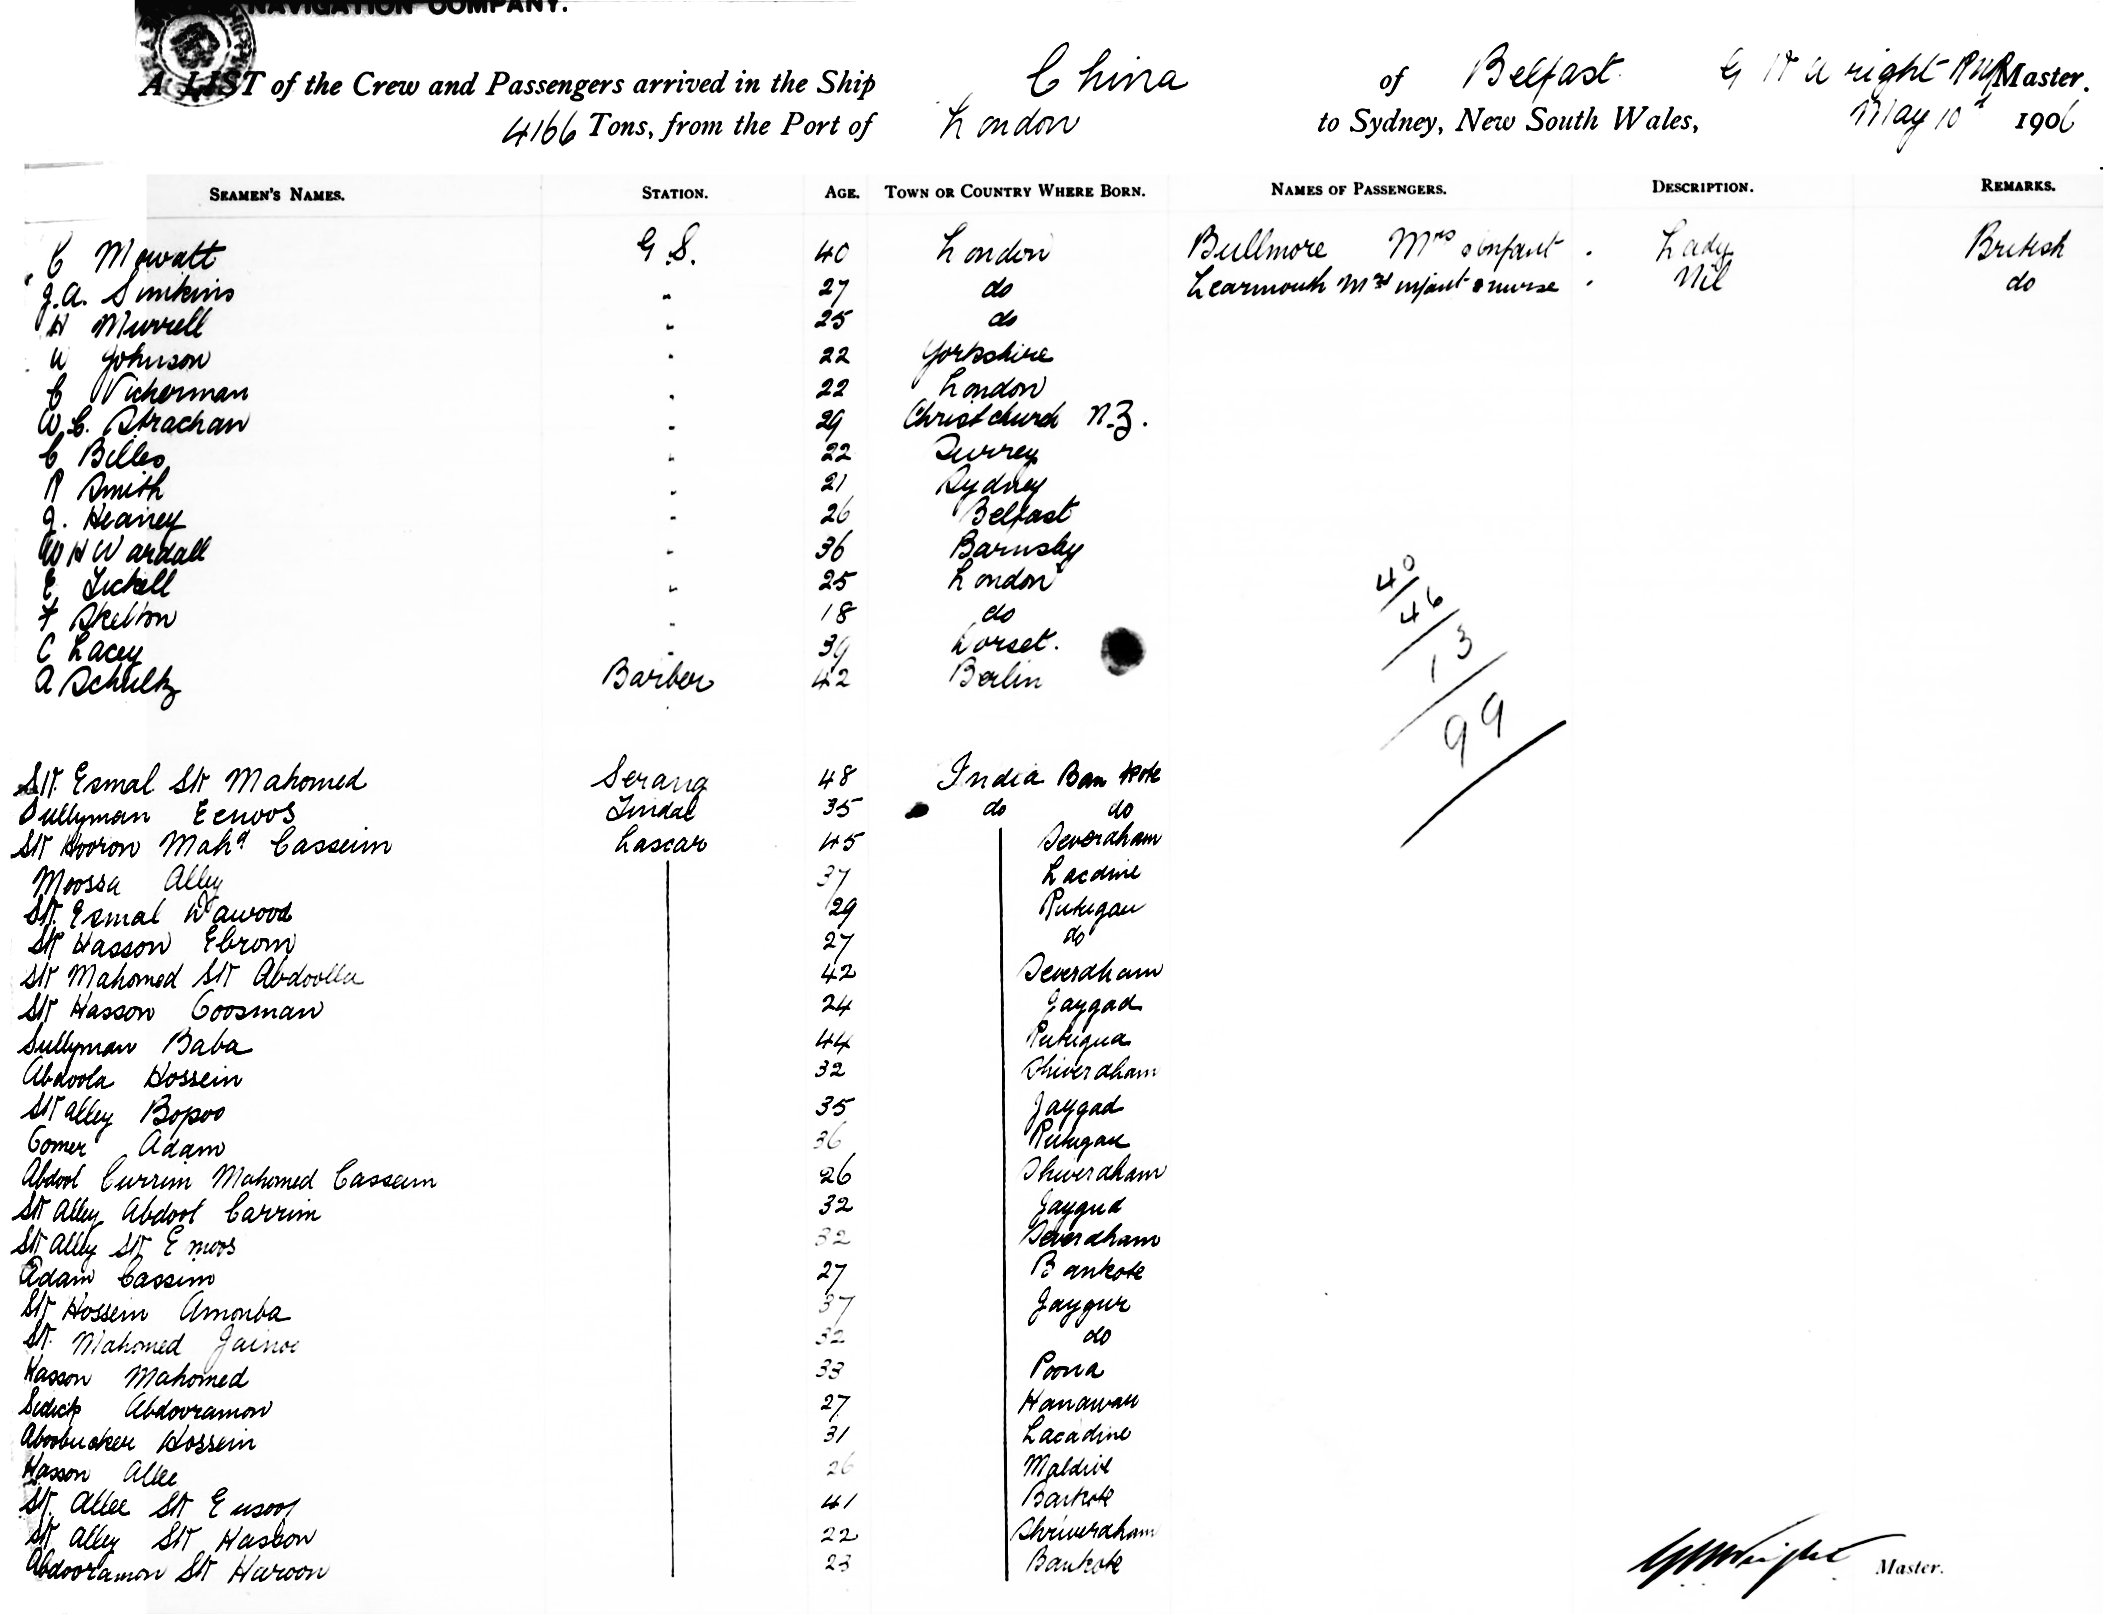 NAVIGATION COMPANY.
A LIST of the Crew and Passengers arrived in the Ship China of Belfast G Wright RNR Master.
4166 Tons, from the Port of London to Sydney, New South Wales, May 10th 1906
SEAMEN'S NAMES. STATION. AGE. TOWN OR COUNTRY WHERE BORN. NAMES OF PASSENGERS. DESCRIPTION. REMARKS.
C Mowatt G.S. 40 London Bullmore Mrs & infant . Lady British
J.A. Simkins " 27 do Learmouth Mrs infant & nurse . Nil do
H Murrell " 25 do
W Johnson " 22 Yorkshire
C Vickerman " 22 London
W.C. Strachan " 29 Christchurch N.Z.
C Billes " 22 Surrey
R Smith " 21 Sydney
J. Heaney " 26 Belfast
W H Wardall " 36 Barnsby
E Tickell " 25 London
F Skelton " 18 do
C Lacey " 39 Dorset.
A Schultz Barber 42 Berlin
40
46
13
99
Sk. Esmal Sk Mahomed Serang 48 India Bankote
Sullyman Eenoos Tindal 35 do do
Sk Hooron Mahd Casseim Lascar 45 Severdham
Moossa Alley 37 Lacdive
Sk. Esmal Dawood 29
Sk Hasson Ebrom 27 do
Sk Mahomed Sk Abdoolla 42 Severdham
Sk Hasson Oosman 24 Jaygad
Sullyman Baba 44
Abdoola Hossein 32 Shiverdham
Sk Alley Bopoo 35 Jaygad
Oomer Adam 36
Abdool Currim Mahomed Casseim 26 Shiverdham
Sk Alley Abdool Carrim 32 Jaygud
Sk Alley Sk Enoos 32 Severdham
Adam Cassim 27 Bankote
Sk Hossein Amonba 37 Jaygur
Sk. Mahomed 32 do
Hasson Mahomed 33 Poona
Sedick Abdooramon 27
Aboobucker Hossein 31 Lacadive
Hasson Allee 26 Maldive
Sk. Allee Sk Eusoof 41 Bankote
Sk Alley Sk Hasson 22 Shriverdham
Abdooramon Sk Haroon 23 Bankote
Wright Master.